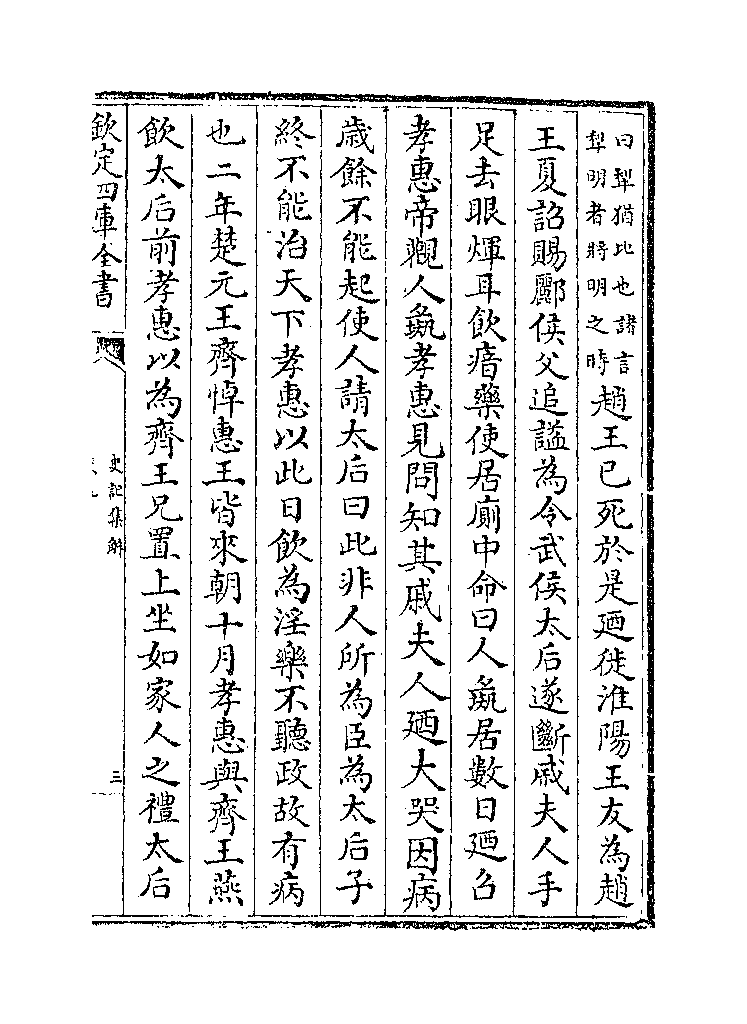 曰犁猶比也諸言
犁明者將明之時
趙王已死於是廼徙淮陽王友為趙
王夏詔賜酈侯父追諡為令武侯太后遂斷戚夫人手
足去眼煇耳飲瘖藥使居廁中命曰人彘居數日廼召
孝惠帝觀人彘孝惠見問知其戚夫人廼大哭因病
歲餘不能起使人請太后曰此非人所為臣為太后子
終不能治天下孝惠以此日飲為淫樂不聽政故有病
也二年楚元王齊悼惠王皆來朝十月孝惠與齊王燕
飲太后前孝惠以為齊王兄置上坐如家人之禮太后
欽定四庫全書
史記集解
三